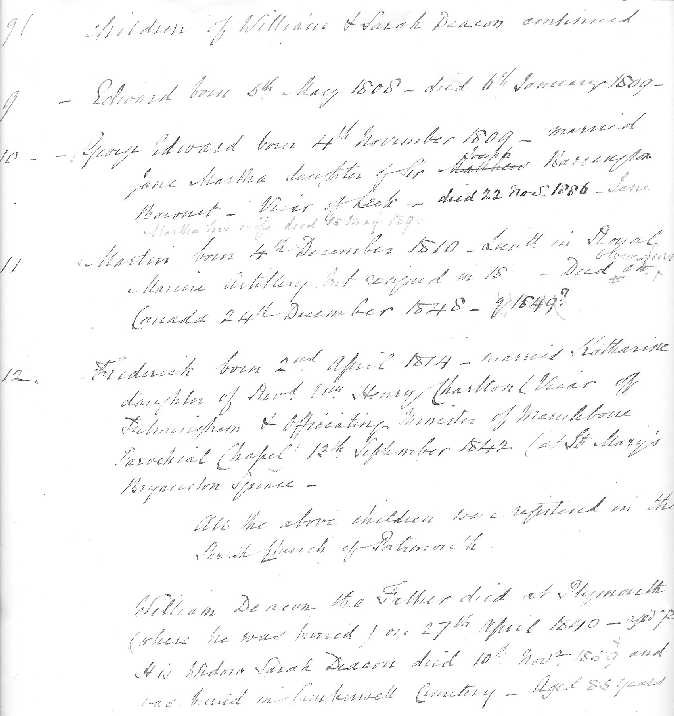 91 Children of William & Sarah Deacon continued
9 - Edward born 5th May 1808 - died 6th January 1809 -
10 - - George Edward born 4th November 1809 - married
Joseph
Jane Martha daughter of Sir Matthew Barrington
Baronet - Vicar of Leek - died 22 Nov. 1886 - Jane
Martha his wife died
11 Martin born 4th December 1810 - Lieutt in Royal
Marine Artillery but resigned in 18 - Died at
Canada 24th December 1848 - q 1849?
12. Frederick born 2nd April 1814 - married Katharine
daughter of Revd Wm Henry Charlton (Vicar of
& Officiating Minister of Marylebone
Parochial Chapel 13th September 1842 (at St Mary's
Bryanston Square -
All the above children were registered in the
Parish Church of Falmouth.
William Deacon the Father died at Plymouth
(where he was buried) on 27th April 1840 -
His Widow Sarah Deacon died 10th Novr. and
was buried in Cemetery - Aged 88 years